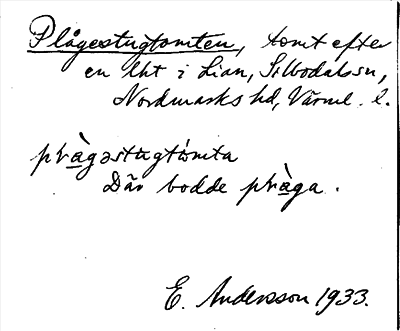 Plågestugtomten, tomt efter
en lht i Lian, Silbodalssn,
Nordmarks hd, Värml. l.
pƚàgəstugtòmta
Där bodde pƚàga.
E. Andersson 1933.